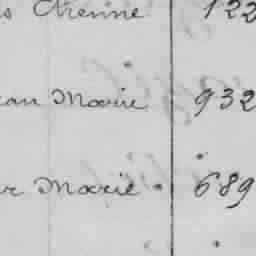 s Etienne 122
ean Marie 932
er Marie 689